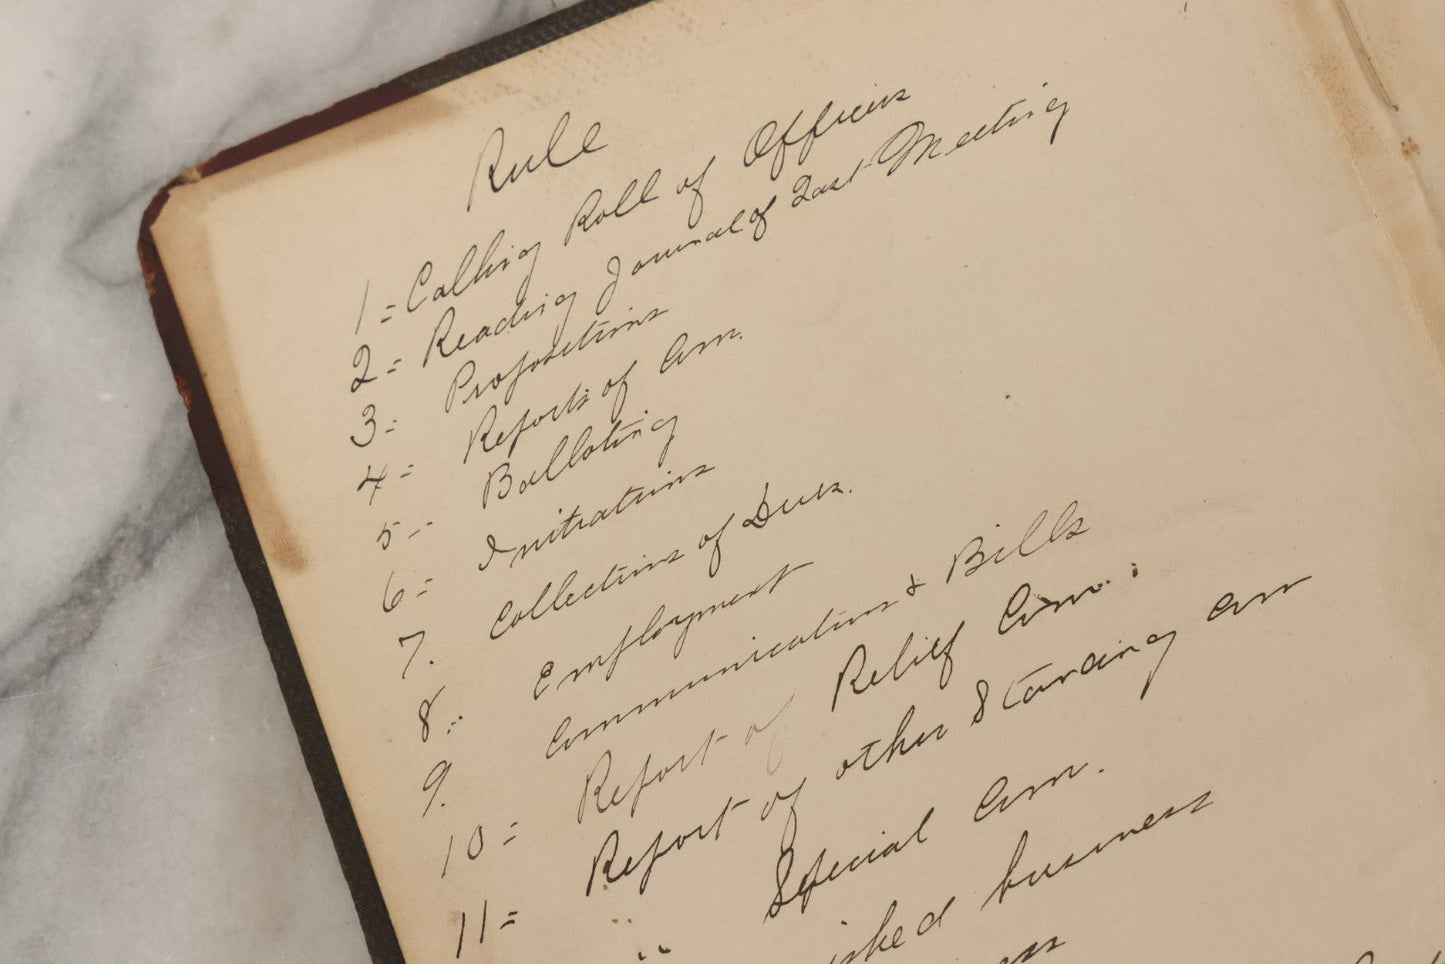 Rule
1 = Calling Roll of Officers
2 = Reading Journal of Last Meeting
3 = Propositions
4 = Reports of Com.
5 = Balloting
6 = Initiations
7. Collections of Dues.
8 = Employment
9. Communications & Bills
10 = Report of Relief Com.
11 = Report of other Standing Com
" Special Com.
ished business
ess